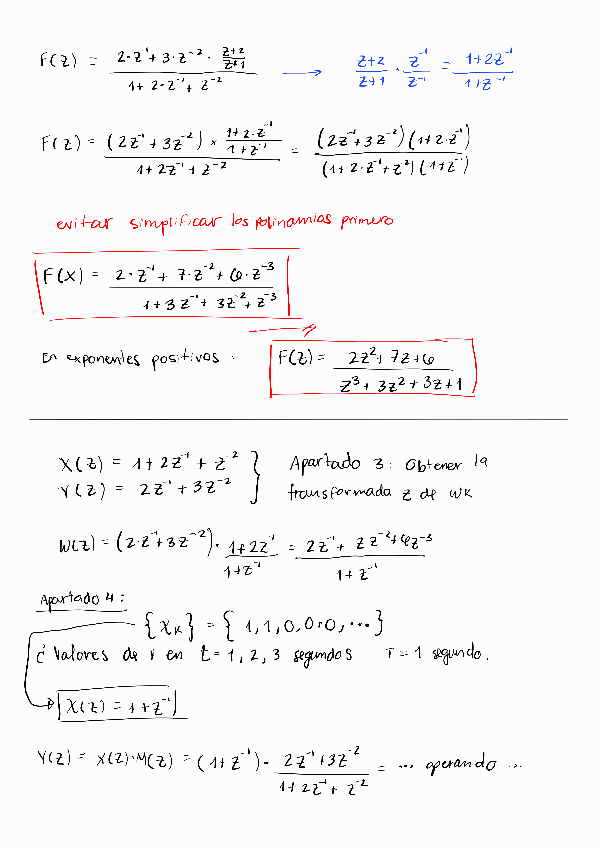 F(z) = (2·z⁻¹ + 3·z⁻² · (z+2)/(z+1)) / (1 + 2·z⁻¹ + z⁻²) ⟶ (z+2)/(z+1) · z⁻¹/z⁻¹ = (1+2z⁻¹)/(1+z⁻¹)
F(z) = ((2z⁻¹ + 3z⁻²) × (1+2·z⁻¹)/(1+z⁻¹)) / (1 + 2z⁻¹ + z⁻²) = ((2z⁻¹+3z⁻²)(1+2·z⁻¹)) / ((1+2·z⁻¹+z⁻²)(1+z⁻¹))
evitar simplificar los polinomios primero
F(x) = (2·z⁻¹ + 7·z⁻² + 6·z⁻³) / (1 + 3z⁻¹ + 3z⁻² + z⁻³)
En exponentes positivos: F(z) = (2z² + 7z + 6) / (z³ + 3z² + 3z + 1)
X(z) = 1 + 2z⁻¹ + z⁻² } Apartado 3: Obtener la
Y(z) = 2z⁻¹ + 3z⁻² } transformada z de wk
W(z) = (2·z⁻¹+3z⁻²) · (1+2z⁻¹)/(1+z⁻¹) = (2z⁻¹ + 7z⁻²+6z⁻³)/(1+z⁻¹)
Apartado 4:
{xk} = { 1, 1, 0, 0, 0, ...}
¿ Valores de r en t = 1, 2, 3 segundos T = 1 segundo.
X(z) = 1 + z⁻¹
Y(z) = X(z)·M(z) = (1+z⁻¹) · (2z⁻¹+3z⁻²)/(1+2z⁻¹+z⁻²) = ... operando ...